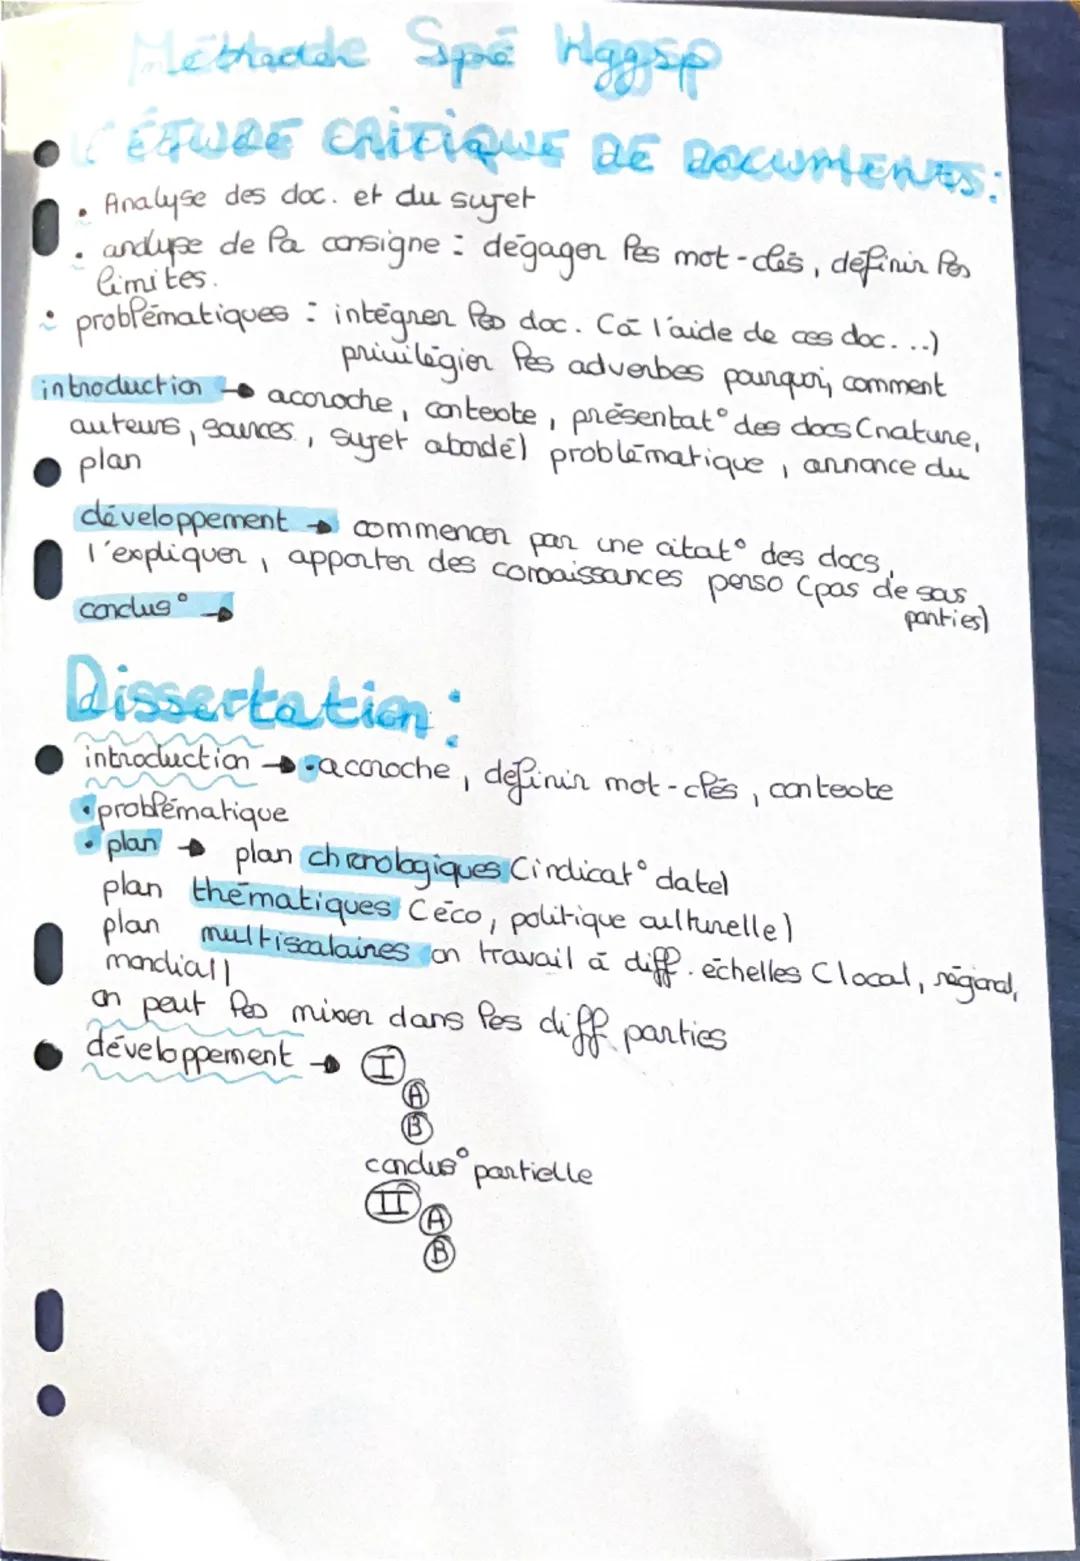 Méthode Spé Hggsp
L'ÉTUDE CRITIQUE DE DOCUMENTS:
• Analyse des doc. et du sujet
• analyse de la consigne : dégager les mot-clés, définir les
limites.
• problématiques : intégrer les doc. (à l'aide de ces doc...)
privilégier les adverbes pourquoi, comment
introduction → accroche, contexte, présentat° des docs (nature,
auteurs, sources, sujet abordé) problématique, annonce du
plan
développement → commencer par une citat° des docs,
l'expliquer, apporter des connaissances perso (pas de sous
parties)
conclus° →
Dissertation :
introduction → • accroche, definir mot-clés, contexte
• problématique
• plan → plan chronologiques (indicat° date)
plan thématiques (éco, politique culturelle)
plan multiscalaires on travail à diff. échelles (local, régional,
mondial)
on peut les mixer dans les diff parties
développement → I
A
B
conclus° partielle
II
A
B